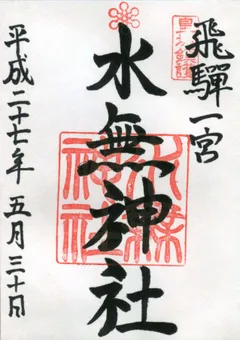 飛騨一宮
水無神社
平成二十七年 五月三十日
水無神社